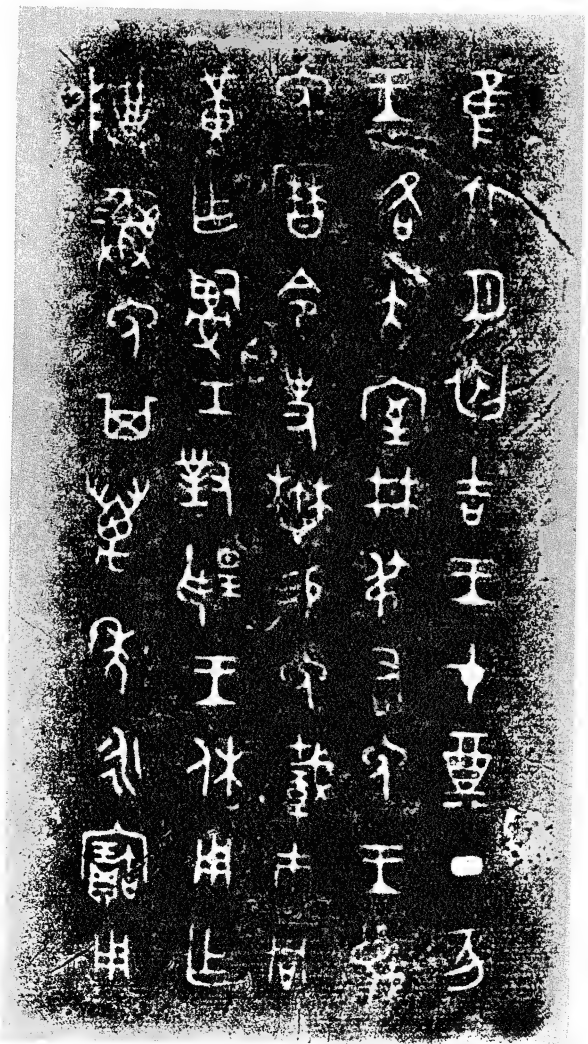 隹六月初吉王才奠丁亥
王各大室井叔右免王蔑
免曆令史懋易免載巿冋
黃乍𤔲工對揚王休用乍
尊彝免其萬年永寶用